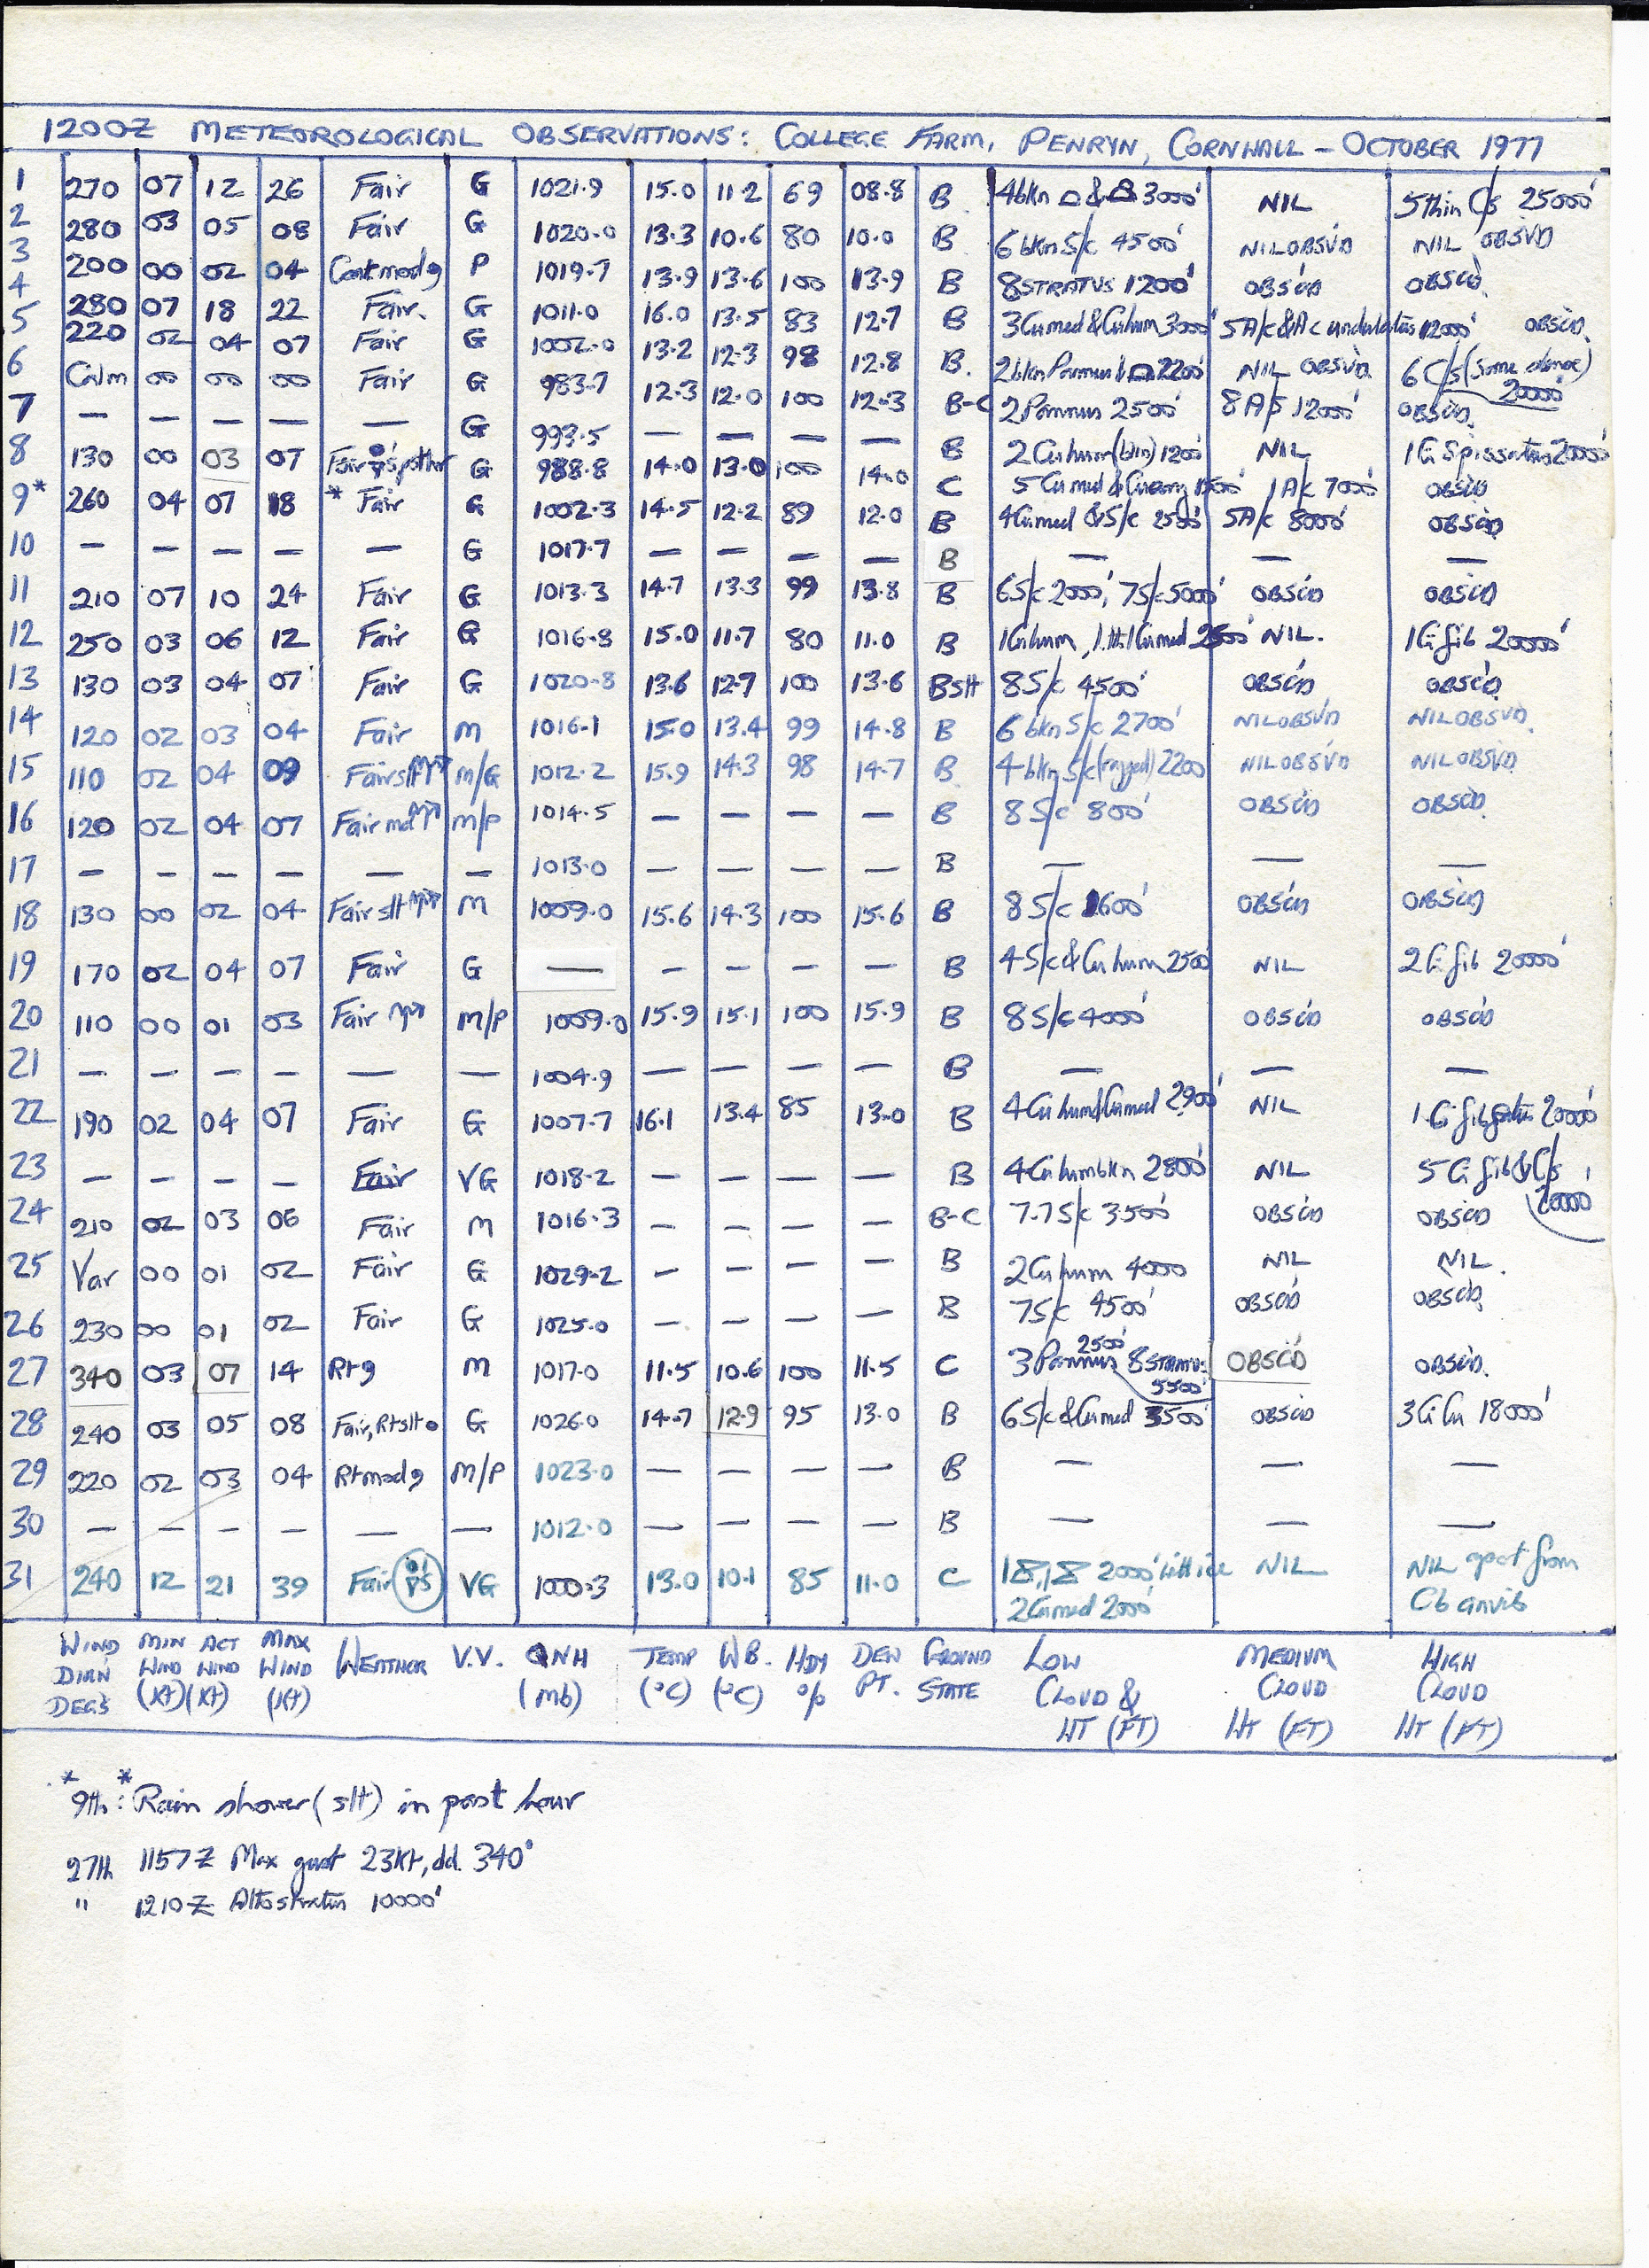 1200Z METEOROLOGICAL OBSERVATIONS: COLLEGE FARM, PENRYN, CORNWALL – OCTOBER 1977
1 270 07 12 26 Fair G 1021.9 15.0 11.2 69 08.8 B 4bkn & 3000' NIL 5thin C/s 25000'
2 280 03 05 08 Fair G 1020.0 13.3 10.6 80 10.0 B 6bkn S/c 4500' NIL OBSVD NIL OBSVD
3 200 00 02 04 P 1019.7 13.9 13.6 100 13.9 B 8STRATUS 1200' OBSC'D OBSC'D
4 280 07 18 22 Fair. G 1011.0 16.0 13.5 83 12.7 B 3Cumed & Cuhum 3000' 5A/c & Ac undulatus 12000' OBSC'D
5 220 02 04 07 Fair G 1002.0 13.2 12.3 98 12.8 B. 2bkn Pannus 2200' NIL OBSVD 6C/s (some dense) 20000'
6 Calm 00 00 00 Fair G 983.7 12.3 12.0 100 12.3 B-C 2Pannus 2500' 8A/s 12000' OBSC'D
7 — — — — — G 993.5 — — — — B 2Cuhum 1200' NIL 1Ci Spissatus 20000'
8 130 00 03 07 Fair G 988.8 14.0 13.0 100 14.0 C 5Cumed & 1A/c 7000' OBSC'D
9* 260 04 07 18 * Fair G 1002.3 14.5 12.2 89 12.0 B 4Cumed & S/c 2500' 5A/c 8000' OBSC'D
10 — — — — — G 1017.7 — — — — B — — —
11 210 07 10 24 Fair G 1013.3 14.7 13.3 99 13.8 B 6S/c 2000', 7S/c 5000' OBSC'D OBSC'D
12 250 03 06 12 Fair G 1016.8 15.0 11.7 80 11.0 B 1Cuhum, Cumed 2500' NIL. 1Ci fib 20000'
13 130 03 04 07 Fair G 1020.8 13.6 12.7 100 13.6 BSH 8S/c 4500' OBSC'D OBSC'D
14 120 02 03 04 Fair M 1016.1 15.0 13.4 99 14.8 B 6bkn S/c 2700' NIL OBSVD NIL OBSVD
15 110 02 04 09 Fair slt M/G 1012.2 15.9 14.3 98 14.7 B 4bkn S/c (ragged) 2200' NIL OBSVD NIL OBSVD
16 120 02 04 07 Fair md M/P 1014.5 — — — — B 8S/c 800' OBSC'D OBSC'D
17 — — — — — — 1013.0 — — — — B — — —
18 130 00 02 04 Fair slt M 1009.0 15.6 14.3 100 15.6 B 8S/c 1600' OBSC'D OBSC'D
19 170 02 04 07 Fair G — — — — — B 4S/c & Cu hum 2500' NIL 2Ci fib 20000'
20 110 00 01 03 Fair M/P 1009.0 15.9 15.1 100 15.9 B 8S/c 4000' OBSC'D OBSC'D
21 — — — — — — 1004.9 — — — — B — — —
22 190 02 04 07 Fair G 1007.7 16.1 13.4 85 13.0 B 4Cu hum & Cumed 2900' NIL 1Ci fib 20000'
23 — — — — Fair VG 1018.2 — — — — B 4Cu hum bkn 2800' NIL 5Ci fib & C/s 20000'
24 210 02 03 06 Fair M 1016.3 — — — — B-C 7.7S/c 3500' OBSC'D OBSC'D
25 Var 00 01 02 Fair G 1029.2 — — — — B 2Cu hum 4000 NIL NIL.
26 230 00 01 02 Fair G 1025.0 — — — — B 7S/c 4500' OBSC'D OBSC'D
27 340 03 07 14 M 1017.0 11.5 10.6 100 11.5 C 3Pannus 2500' 8STRATUS 5500' OBSC'D OBSC'D.
28 240 03 05 08 Fair, G 1026.0 14.7 12.9 95 13.0 B 6S/c & Cumed 3500' OBSC'D 3Ci Cu 18000'
29 220 02 03 04 M/P 1023.0 — — — — B — — —
30 — — — — — — 1012.0 — — — — B — — —
31 240 12 21 39 Fair VG 1000.3 13.0 10.1 85 11.0 C 2000' NIL NIL apart from
2Cumed 2000' Cb anvils
WIND DIRN DEGS MIN WIND (Kt) ACT WIND (Kt) MAX WIND (Kt) WEATHER V.V. QNH (mb) TEMP (°C) W.B. (°C) HDY % DEW PT. GROUND STATE LOW CLOUD & HT (FT) MEDIUM CLOUD HT (FT) HIGH CLOUD HT (FT)
* 9th: * Rain shower (slt) in past hour
27th 1157Z Max gust 23kt, dd. 340°
" 1210Z Altostratus 10000'